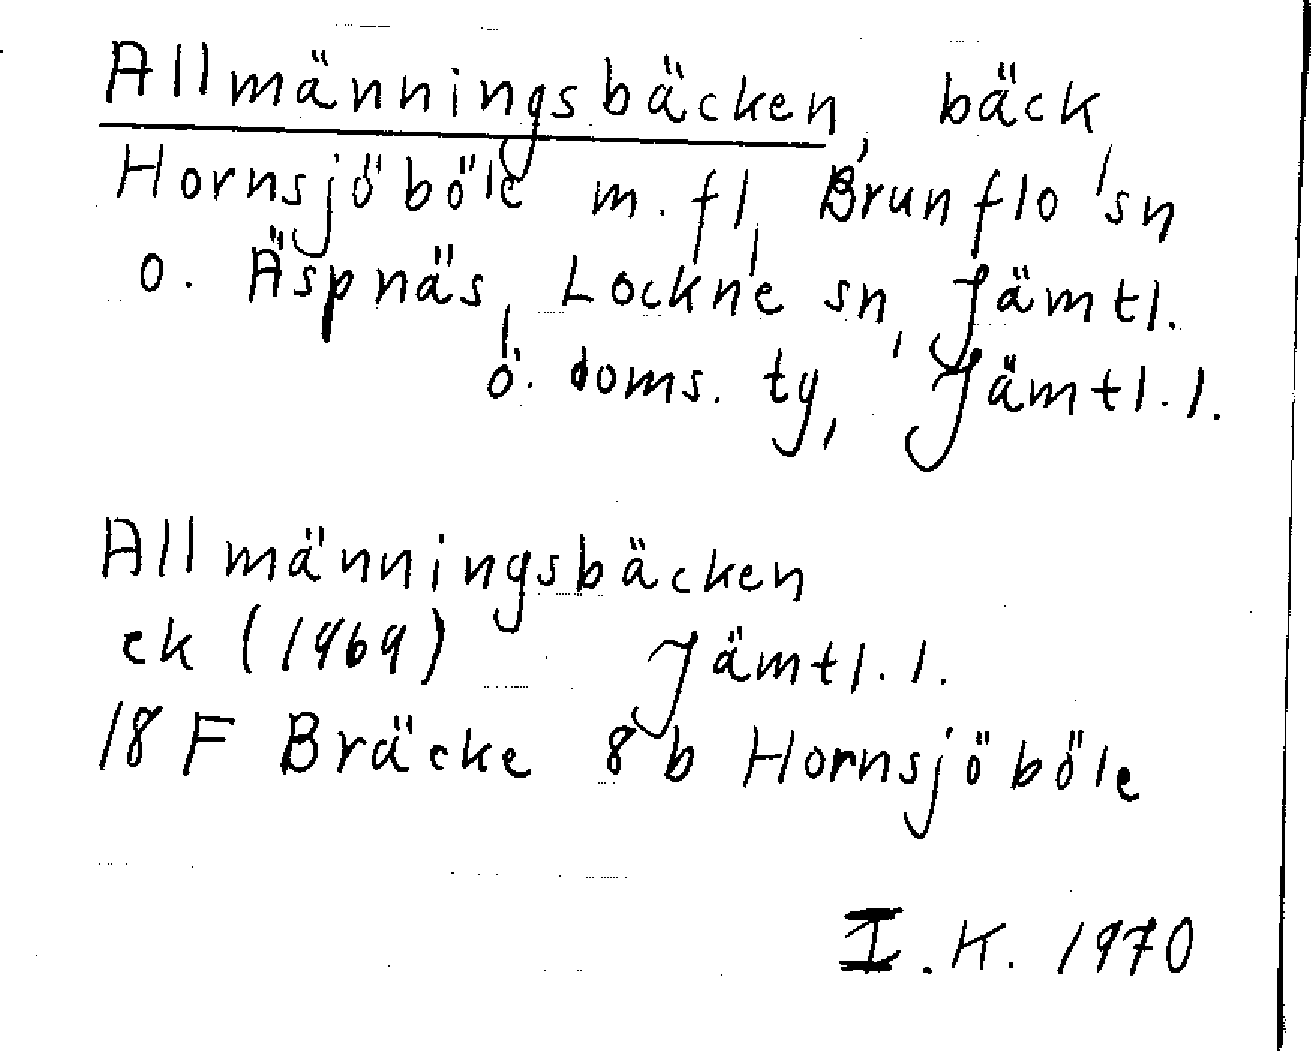 Allmänningsbäcken, bäck,
Hornsjöböle m.fl, Brunflo sn
o. Äspnäs, Lockne sn, Jämtl.
ö. doms. tg, Jämtl.l.
Allmänningsbäcken
ek (1969) Jämtl.l.
18 F Bräcke 8 b Hornsjöböle
I.K. 1970